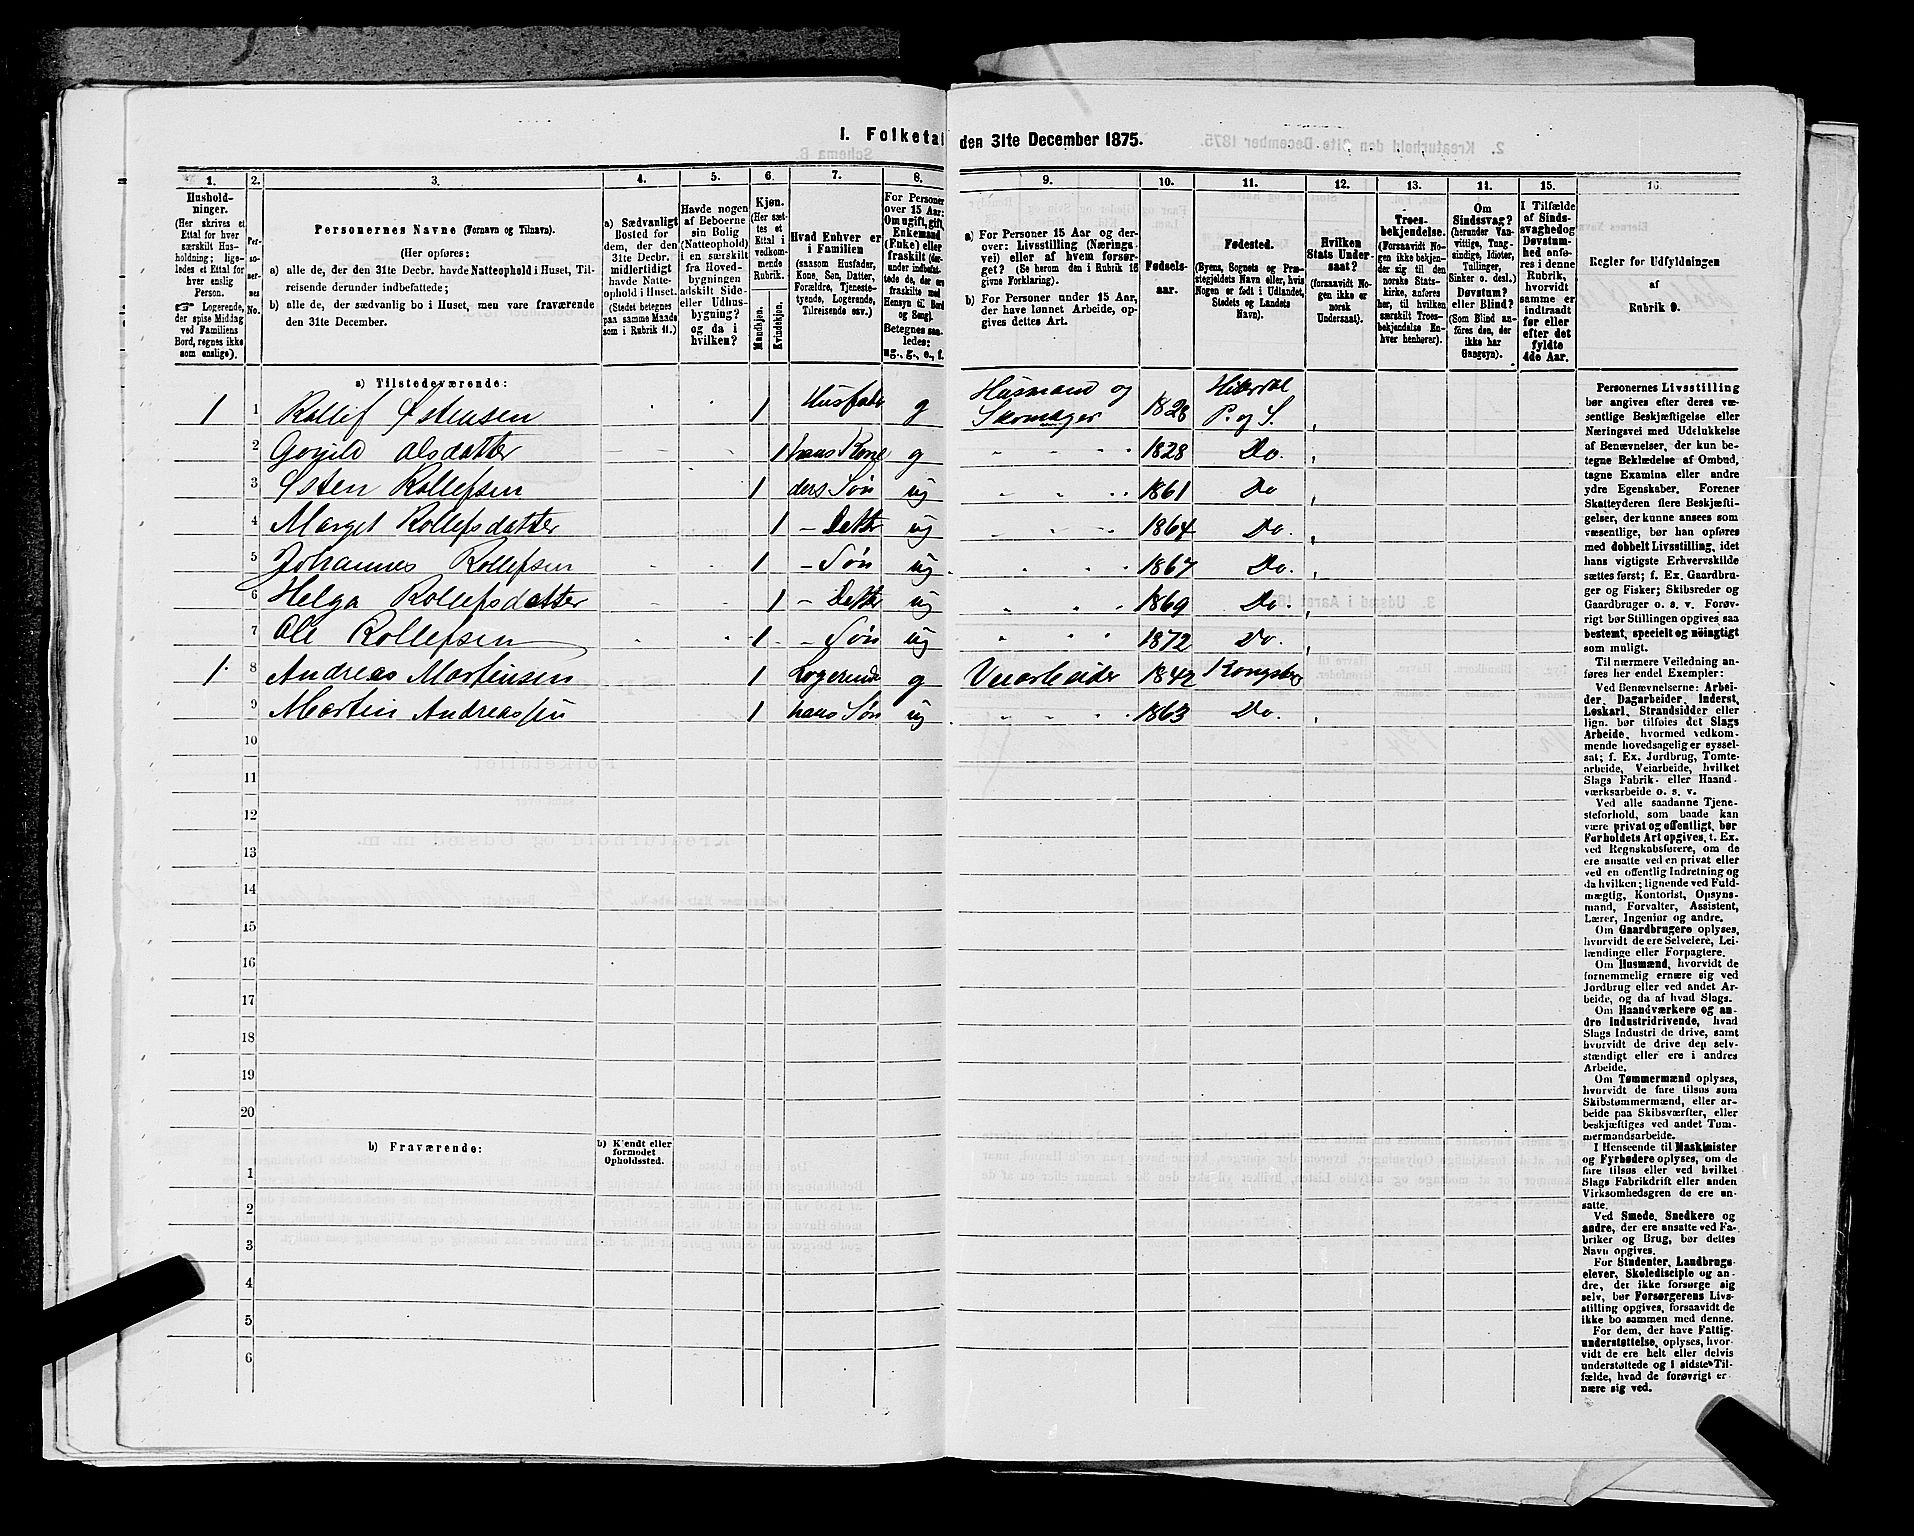 I. Folketal den 31te December 1875.
1. 2. 3. 4. 5. 6. 7. 8. 9. 10. 11. 12. 13. 14. 15. 16.
Hushold-
ninger.
(Her skrives et
Ettal for hver
særskilt Hus-
holdning; lige-
ledes et Ettal for
hver enslig
Person.
☞ Logerende,
der spise Middag
ved Familiens
Bord, regnes ikke
som enslige).
Per-
soner-
nes
No.
Personernes Navne (Fornavn og Tilnavn).
(Her opføres:
a) alle de, der den 31te Decbr. havde Natteophold i Huset, Til-
reisende derunder indbefattede;
b) alle de, der sædvanlig bo i Huset, men vare fraværende
den 31te December.
a) Sædvanligt
Bosted for
dem, der den
31te Decbr.
midlertidigt
havde Natte-
ophold i Huset.
(Stedet betegnes
paa samme Maade
som i Rubrik 11.)
Havde nogen
af Beboerne
sin Bolig
(Natteophold)
i en særskilt
fra Hoved-
bygningen
adskilt Side-
eller Udhus-
bygning?
og da i
hvilken?
Kjøn.
(Her sæt-
tes et
Ettal i
vedkom-
mende
Rubrik.
Mandkjøn.
Kvindekjøn.
Hvad Enhver er
i Familien
(saasom Husfader,
Kone, Søn, Datter,
Forældre, Tjeneste-
tyende, Logerende,
Tilreisende osv.)
For Personer
over 15 Aar:
Om ugift, gift,
Enkemand
(Enke) eller
fraskilt (der-
under indbefat-
tede de, der ere
fraskilte med
Hensyn til Bord
og Seng).
Betegnes saa-
ledes:
ug., g., e., f.
a) For Personer 15 Aar og der-
over: Livsstilling (Nærings-
vei) eller af hvem forsør-
get? (Se herom den i Rubrik 16
givne Forklaring).
b) For Personer under 15 Aar,
der have lønnet Arbeide, op-
gives dettes Art.
Fødsels-
aar.
Fødested.
(Byens, Sognets og Præ-
stegjeldets Navn eller, hvis
Nogen er født i Udlandet,
Stedets og Landets
Navn).
Hvilken
Stats Under-
saat?
(forsaavidt No-
gen ikke er
norsk
Undersaat).
Troes-
bekjendelse.
(Forsaavidt No-
gen ikke bekjen-
der sig til den
norske Stats-
kirke, anføres
her, til hvilken
særskilt Troes-
bekjendelse En-
hver henhører).
Om
Sindssvag?
(herunder Van-
vittige, Tung-
sindige, Idioter,
Tullinger,
Sinker o. desl.)
Døvstum?
eller Blind?
(Som Blind an-
føres den, der
ikke har
Gangsyn).
I Tilfælde
af Sinds-
svaghed og
Døvstum-
hed anføres
i denne
Rubrik,
hvorvidt
samme er
indtraadt
før eller
efter det
fyldte
4de Aar.
Regler for Udfyldningen
af
Rubrik 9.
a) Tilstedeværende:
1 1 Rollef Østensen 1 Husfader g Husmand og Skomager 1828 Hiterdal P. og S.
2 Gonild Olsdatter 1 hans Kone g 1828 Do.
3 Østen Rollefsen 1 ders Søn ug 1861 Do
4 Marget Rollefsdatter 1 - Datter ug 1864 Do.
5 Johannes Rollefsen 1 - Søn ug 1867 Do.
6 Helga Rollefsdatter 1 - Datter ug 1869 Do.
7 Ole Rollefsen 1 - Søn ug 1872 Do.
1. 8 Andreas Martinsen 1 Logerende g Veiarbeider 1842 Kongsberg
9 Martin Andreassen 1 hans Søn ug 1863 Do.
10
11
12
13
14
15
16
17
18
19
20
b) Fraværende:
b) Kjendt eller
formodet
Opholdssted.
1
2
3
4
5
6
Personernes Livsstilling
bør angives efter deres væ-
sentlige Beskjæftigelse eller
Næringsvei med Udelukkelse
af Benævnelser, der kun be-
tegne Beklædelse af Ombud,
tagne Examina eller andre
ydre Egenskaber. Forener
Skatteyderen flere Beskjæfti-
gelser, der kunne ansees som
væsentlige, bør han opføres
med dobbelt Livsstilling, idet
hans vigtigste Erhvervskilde
sættes først; f. Ex. Gaardbru-
ger og Fisker; Skibsreder og
Gaardbruger o. s. v. Forøv-
rigt bør Stillingen opgives saa
bestemt, specielt og nøiagtigt
som muligt.
Til nærmere Veiledning an-
føres her endel Exempler:
Ved Benævnelserne: Arbei-
der, Dagarbeider, Inderst,
Løskarl, Strandsidder eller
lign. bør tilføies det Slags
Arbeide, hvormed vedkom-
mende hovedsagelig er syssel-
sat; f. Ex. Jordbrug, Tomte-
arbeide, Veiarbeide, hvilket
Slags Fabrik- eller Haand-
værksarbeide o. s. v.
Ved alle saadanne Tjene-
steforhold, som baade kan
være privat og offentligt, bør
Forholdets Art opgives, t. Ex.
ved Regnskabsførere, om de
ere ansatte ved en privat eller
ved en offentlig Indretning og
da hvilken; lignende ved Fuld-
mægtig, Kontorist, Opsyns-
mand, Forvalter, Assistent,
Lærer, Ingeniør og andre.
Om Gaardbrugere oplyses,
hvorvidt de ere Selveiere, Lei-
lændinge eller Forpagtere.
Om Husmænd, hvorvidt de
fornemmelig ernære sig ved
Jordbrug eller ved andet Ar-
beide, og da af hvad Slags.
Om Haandværkere og an-
dre Industridrivende, hvad
Slags Industri de drive, samt
hvorvidt de drive den selv-
stændigt eller ere i andres
Arbeide.
Om Tømmermænd oplyses,
hvorvidt de fare tilsøs som
Skibstømmermænd, eller ar-
beide paa Skibsværfter, eller
beskjæftiges ved andet Tøm-
mermandsarbeide.
I Henseende til Maskinister
og Fyrbødere oplyses, om de
fare tilsøs eller ved hvilket
Slags Fabrikdrift eller anden
Virksomhedsgren de ere an-
satte.
Ved Smede, Snedkere og
andre, der ere ansatte ved Fa-
briker og Brug, bør dettes
Navn opgives.
For Studenter, Landbrugs-
elever, Skoledisciple og an-
dre, der ikke forsørge sig
selv, bør Forsørgerens Livs-
stilling opgives, forsaavidt de
ikke bo sammen med denne.
For dem, der have Fattig-
understøttelse, oplyses, hvor-
vidt de ere helt eller delvis
understøttede og i sidste Til-
fælde, hvad de forøvrigt er-
nære sig ved.